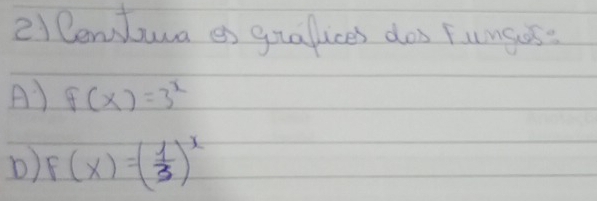 2) Construa os gráficos das Funções:
A) f(x) = 3^x
b) F(x) = (1/3)^x